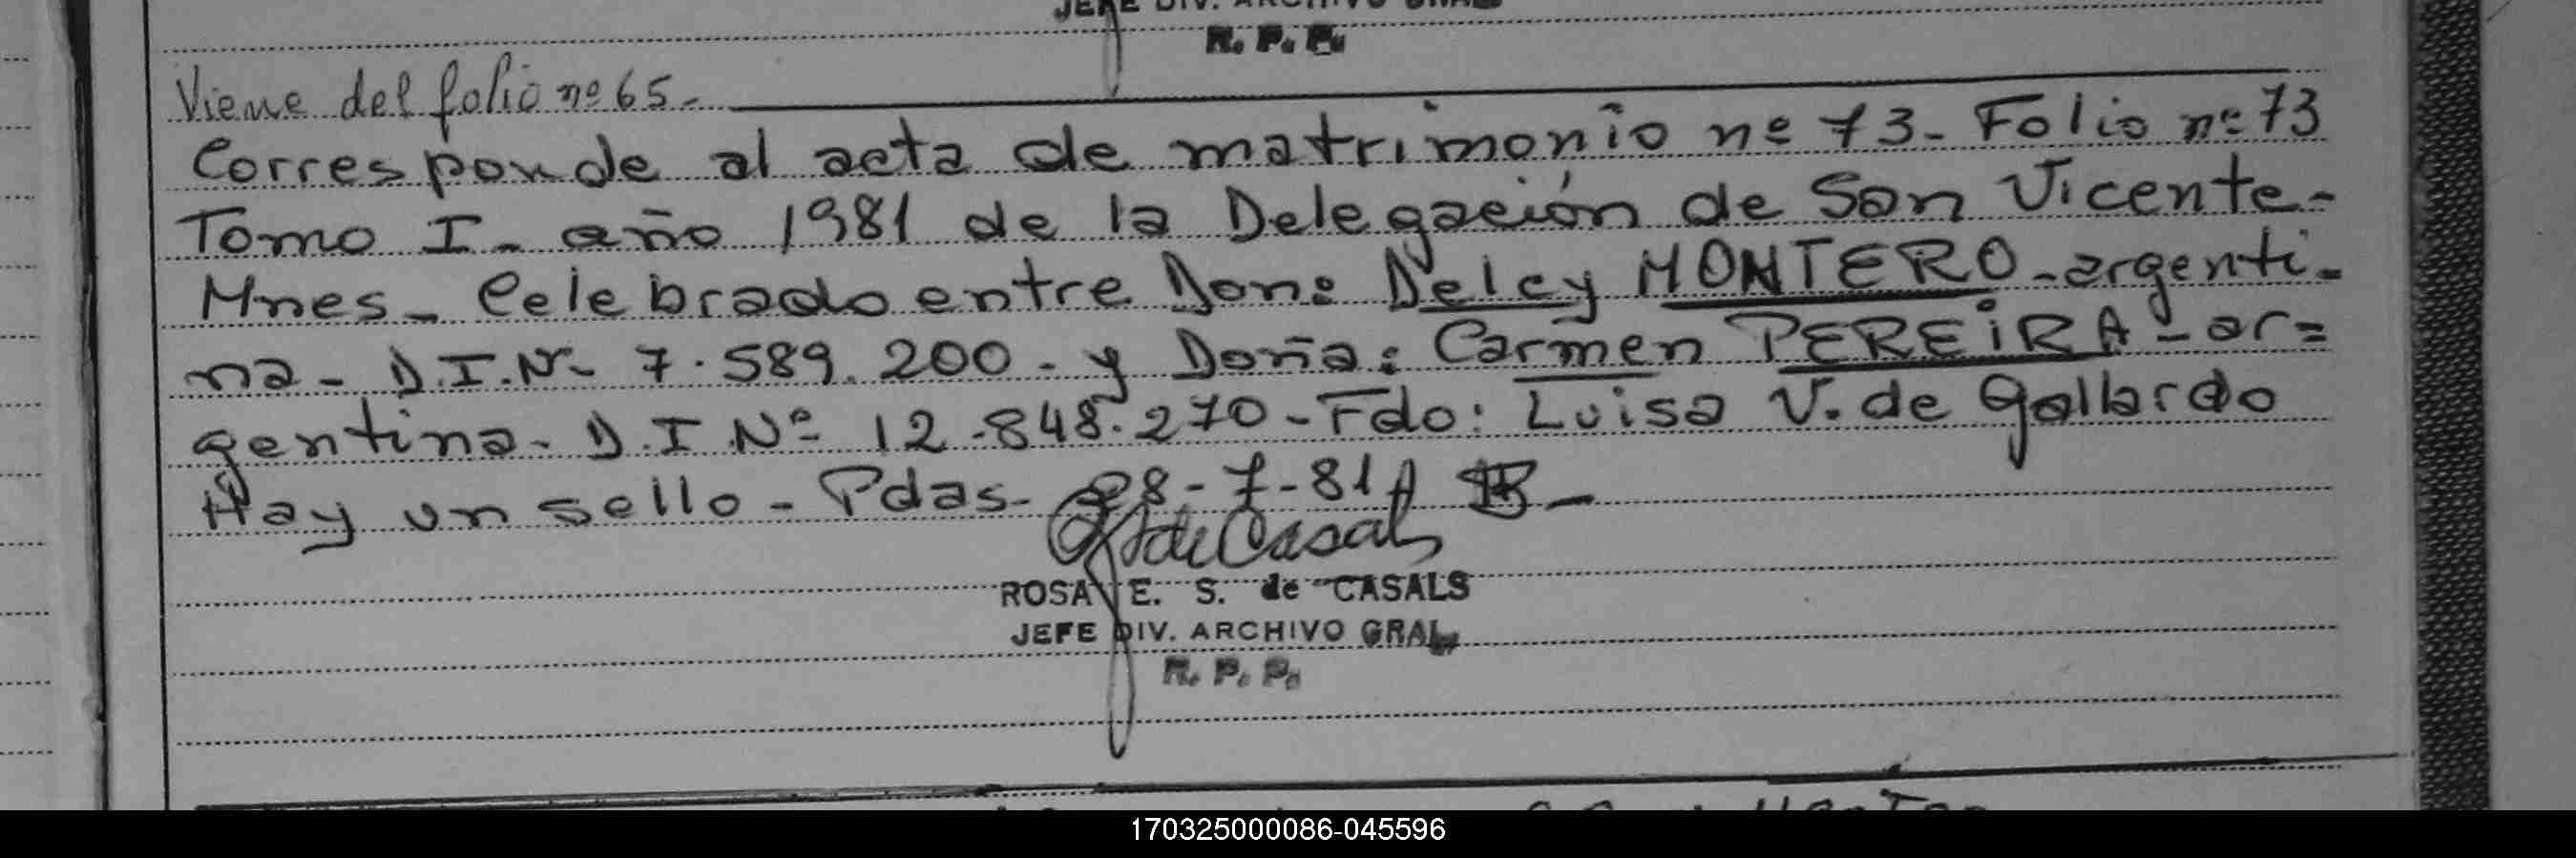 JEFE DIV. ARCHIVO GRAL
R. P. P.
Viene del folio nº 65.
Corresponde al acta de matrimonio nº 73- Folio nº 73
Tomo I- año 1981 de la Delegación de San Vicente-
Mnes- Celebrado entre Don: Delcy MONTERO-argenti-
na- D.I.Nº- 7.589.200- y Doña: Carmen PEREIRA- ar=
gentina- D.I.Nº 12.848.270-Fdo: Luisa V. de Gallardo
Hay un sello- Pdas- 28-7-81
de Casals
ROSA E. S. de CASALS
JEFE DIV. ARCHIVO GRAL.
R. P. P.
170325000086-045596